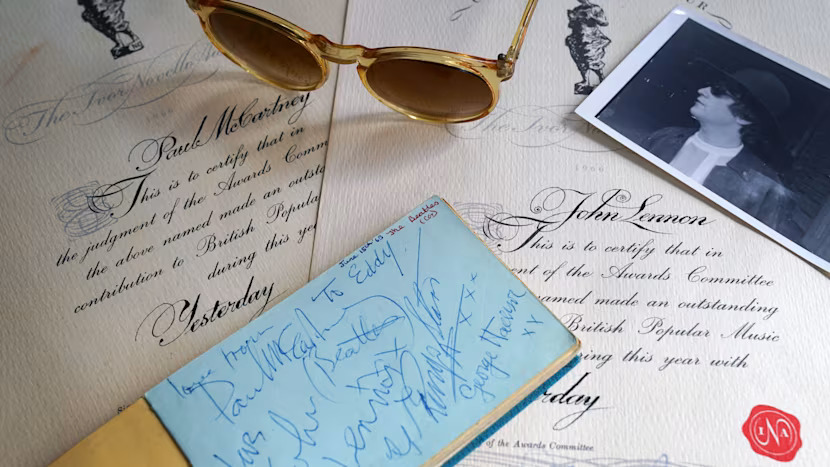 The Ivor Novello
1966
Paul McCartney
This is to certify that in
the judgment of the Awards Comm
the above named made an outsta
contribution to British Popula
during this yea
Yesterday
OUR
John Lennon
This is to certify that in
ent of the Awards Committee
named made an outstanding
British Popular Music
ring this year with
rday
of the Awards Committee
INA
June 18th 63
The Beatles
To Eddy
love from
Paul McCartney
(Beatles)
love
John
Lennon
Ringo Starr
xxx
George Harrison
xx